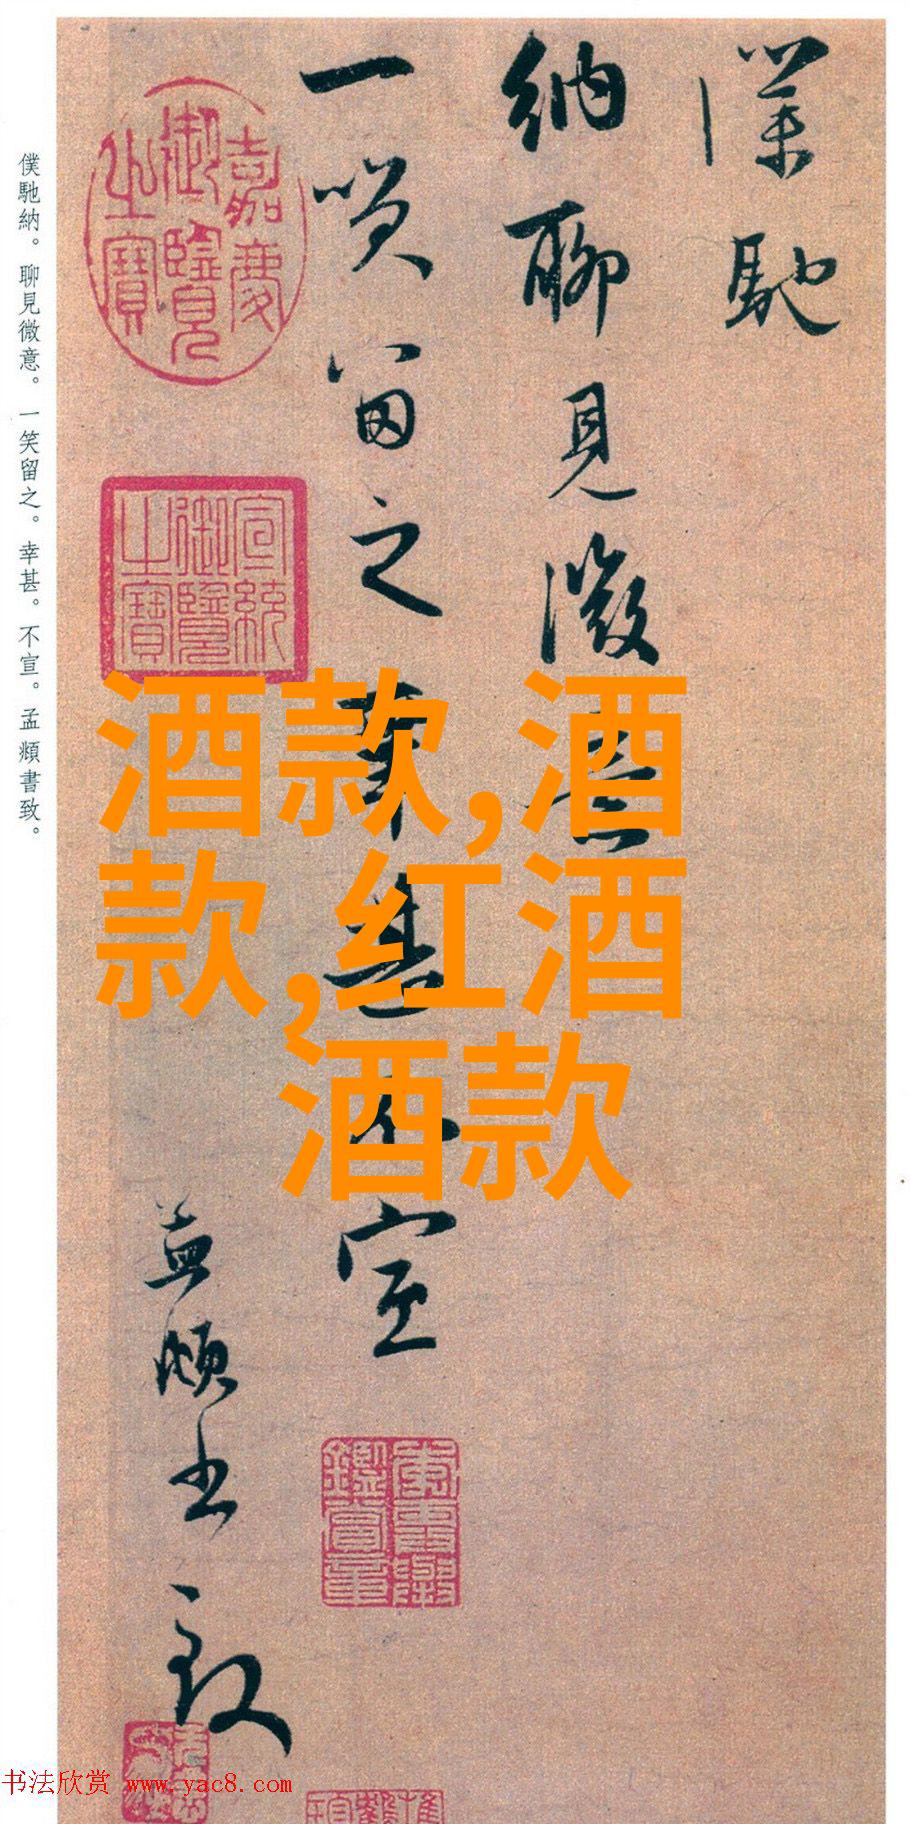 僕馳
納聊見微意
一笑留之幸甚不宣
孟頫書致
僕馳納。聊見微意。一笑留之。幸甚。不宣。孟頫書致。
嘉慶御覽之寶
宣統御覽之寶
酒款,酒
款,红酒
酒款
书法欣赏 www.yac8.com